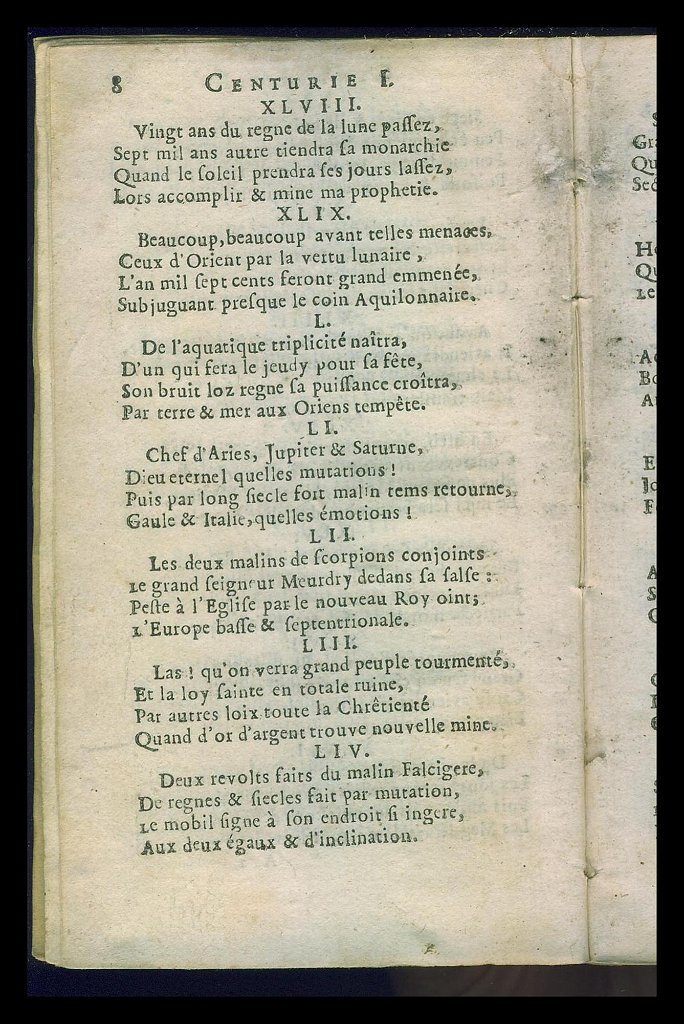 8 CENTURIE I.
XLVIII.
Vingt ans du regne de la lune paſſez,
Sept mil ans autre tiendra ſa monarchie
Quand le ſoleil prendra ſes jours laſſez,
Lors accomplir & mine ma prophetie.
XLIX.
Beaucoup, beaucoup avant telles menaces,
Ceux d'Orient par la vertu lunaire,
L'an mil ſept cents feront grand emmenée,
Subjuguant preſque le coin Aquilonnaire.
L.
De l'aquatique triplicité naîtra,
D'un qui fera le jeudy pour ſa fête,
Son bruit loz regne ſa puiſſance croîtra,
Par terre & mer aux Oriens tempête.
LI.
Chef d'Aries, Jupiter & Saturne,
Dieu eternel quelles mutations !
Puis par long ſiecle fort malin tems retourne,
Gaule & Italie, quelles émotions !
LII.
Les deux malins de ſcorpions conjoints
Le grand ſeigneur Meurdry dedans ſa ſalſe :
Peſte à l'Egliſe par le nouveau Roy oint;
L'Europe baſſe & ſeptentrionale.
LIII.
Las ! qu'on verra grand peuple tourmenté,
Et la loy ſainte en totale ruine,
Par autres loix toute la Chrêtienté
Quand d'or d'argent trouve nouvelle mine.
LIV.
Deux revolts faits du malin Falcigere,
De regnes & ſiecles fait par mutation,
Le mobil ſigne à ſon endroit ſi ingere,
Aux deux égaux & d'inclination.